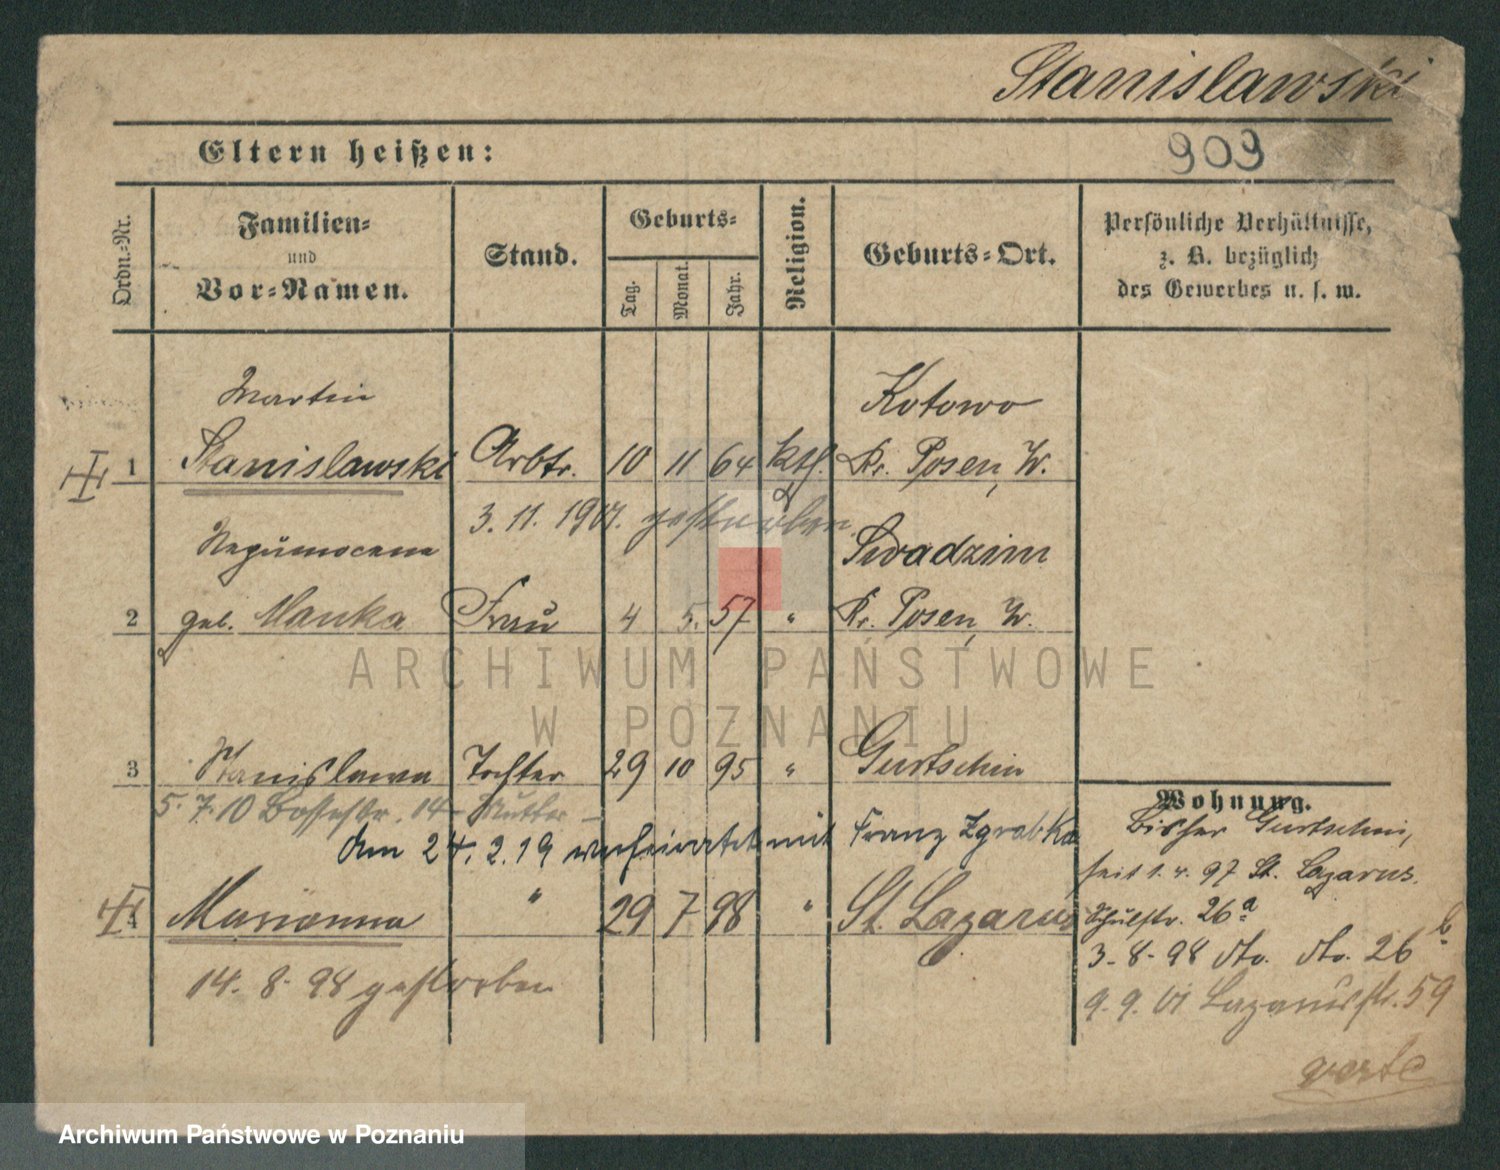 Stanislawski
Eltern heißen:
909
Ordn.-Nr.
Familien-
und
Vor-Namen.
Stand.
Geburts-
Tag.
Monat.
Jahr.
Religion.
Geburts-Ort.
Persönliche Verhältnisse,
z. B. bezüglich
des Gewerbes u. s. w.
Martin
Kotowo
1 Stanislawski Arbtr. 10 11 64 kth. Kr. Posen, W.
3. 11. 1901. gestorben
Nepumocena
Swadzim
2 geb. Manka Frau 4 5. 57 " Kr. Posen, W.
ARCHIWUM PAŃSTWOWE
W POZNANIU
3 Stanislawa Tochter 29 10 95 " Gurtschin
5. 7. 10 14 Mutter
Am 24. 2. 19 verheiratet mit Franz Zgrabka
4 Marianna " 29 7 98 " St. Lazarus
14. 8. 98 gestorben
Wohnung.
Bisher Gurtschin,
seit 1. 4. 97 St. Lazarus
Schulstr. 26a
3. 8. 98 dto. dto. 26 b.
9. 9. 01 Lazarusstr. 59
verte
Archiwum Państwowe w Poznaniu